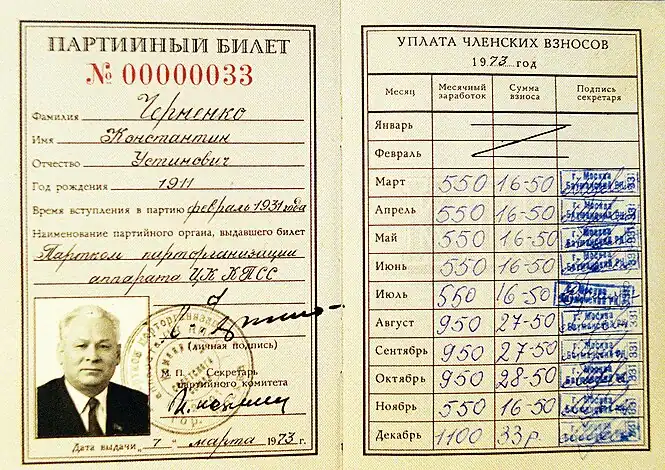 ПАРТИЙНЫЙ БИЛЕТ
№ 00000033
Фамилия Черненко
Имя Константин
Отчество Устинович
Год рождения 1911
Время вступления в партию февраль 1931 года
Наименование партийного органа, выдавшего билет
Партком парторганизации
аппарата ЦК КПСС
(личная подпись)
М. П. Секретарь
партийного комитета
Дата выдачи „7" марта 1973 г.
УПЛАТА ЧЛЕНСКИХ ВЗНОСОВ
1973 год
Месяц Месячный заработок Сумма взноса Подпись секретаря
Январь
Февраль
Март 550 16-50 г. Москва Бауманский РК 331
Апрель 550 16-50 г. Москва Бауманский РК 331
Май 550 16-50 г. Москва Бауманский РК 331
Июнь 550 16-50 г. Москва Бауманский РК 331
Июль 550 16-50 г. Москва
Август 950 27-50 г. Москва Бауманский РК 331
Сентябрь 950 27-50 г. Москва Бауманский РК 331
Октябрь 950 28-50 г. Москва Бауманский РК 331
Ноябрь 550 16-50 г. Москва Бауманский РК 331
Декабрь 1100 33 р.